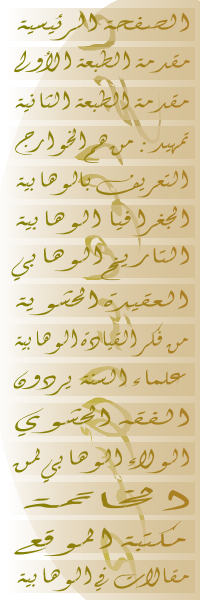 الصفحة الرئيسية
مقدمة الطبعة الأولى
مقدمة الطبعة الثانية
تمهيد : من هم الخوارج
التعريف بالوهابية
الجغرافيا الوهابية
التاريخ الوهابي
العقيدة الحشوية
من فكر القيادة الوهابية
علماء السنة يردون
الفقه الحشوي
الولاء الوهابي لمن
خاتمة
مكتبة الموقع
مقالات في الوهابية